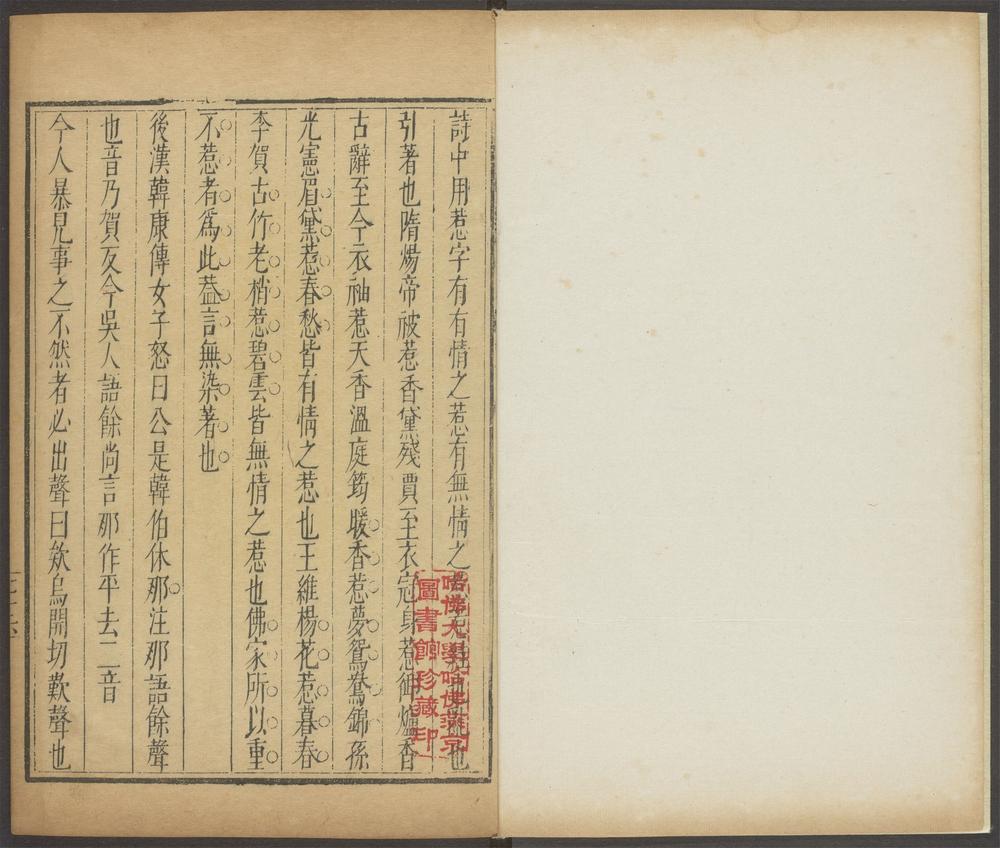 詩中用惹字有有情之惹有無情之惹惹者絓也亂也
引著也隋煬帝被惹香黛殘賈至衣冠身惹御爐香
古辭至今衣袖惹天香溫庭筠暖香惹夢鴛鴦錦孫
光憲眉黛惹春愁皆有情之惹也王維楊花惹暮春
李賀古竹老梢惹碧雲皆無情之惹也佛家所以重
不惹者爲此葢言無染著也
後漢韓康傳女子怒曰公是韓伯休那注那語餘聲
也音乃賀反今吳人語餘尚言那作平去二音
今人暴見事之不然者必出聲曰欸烏開切歎聲也
哈佛大學哈佛燕京
圖書館珍藏印